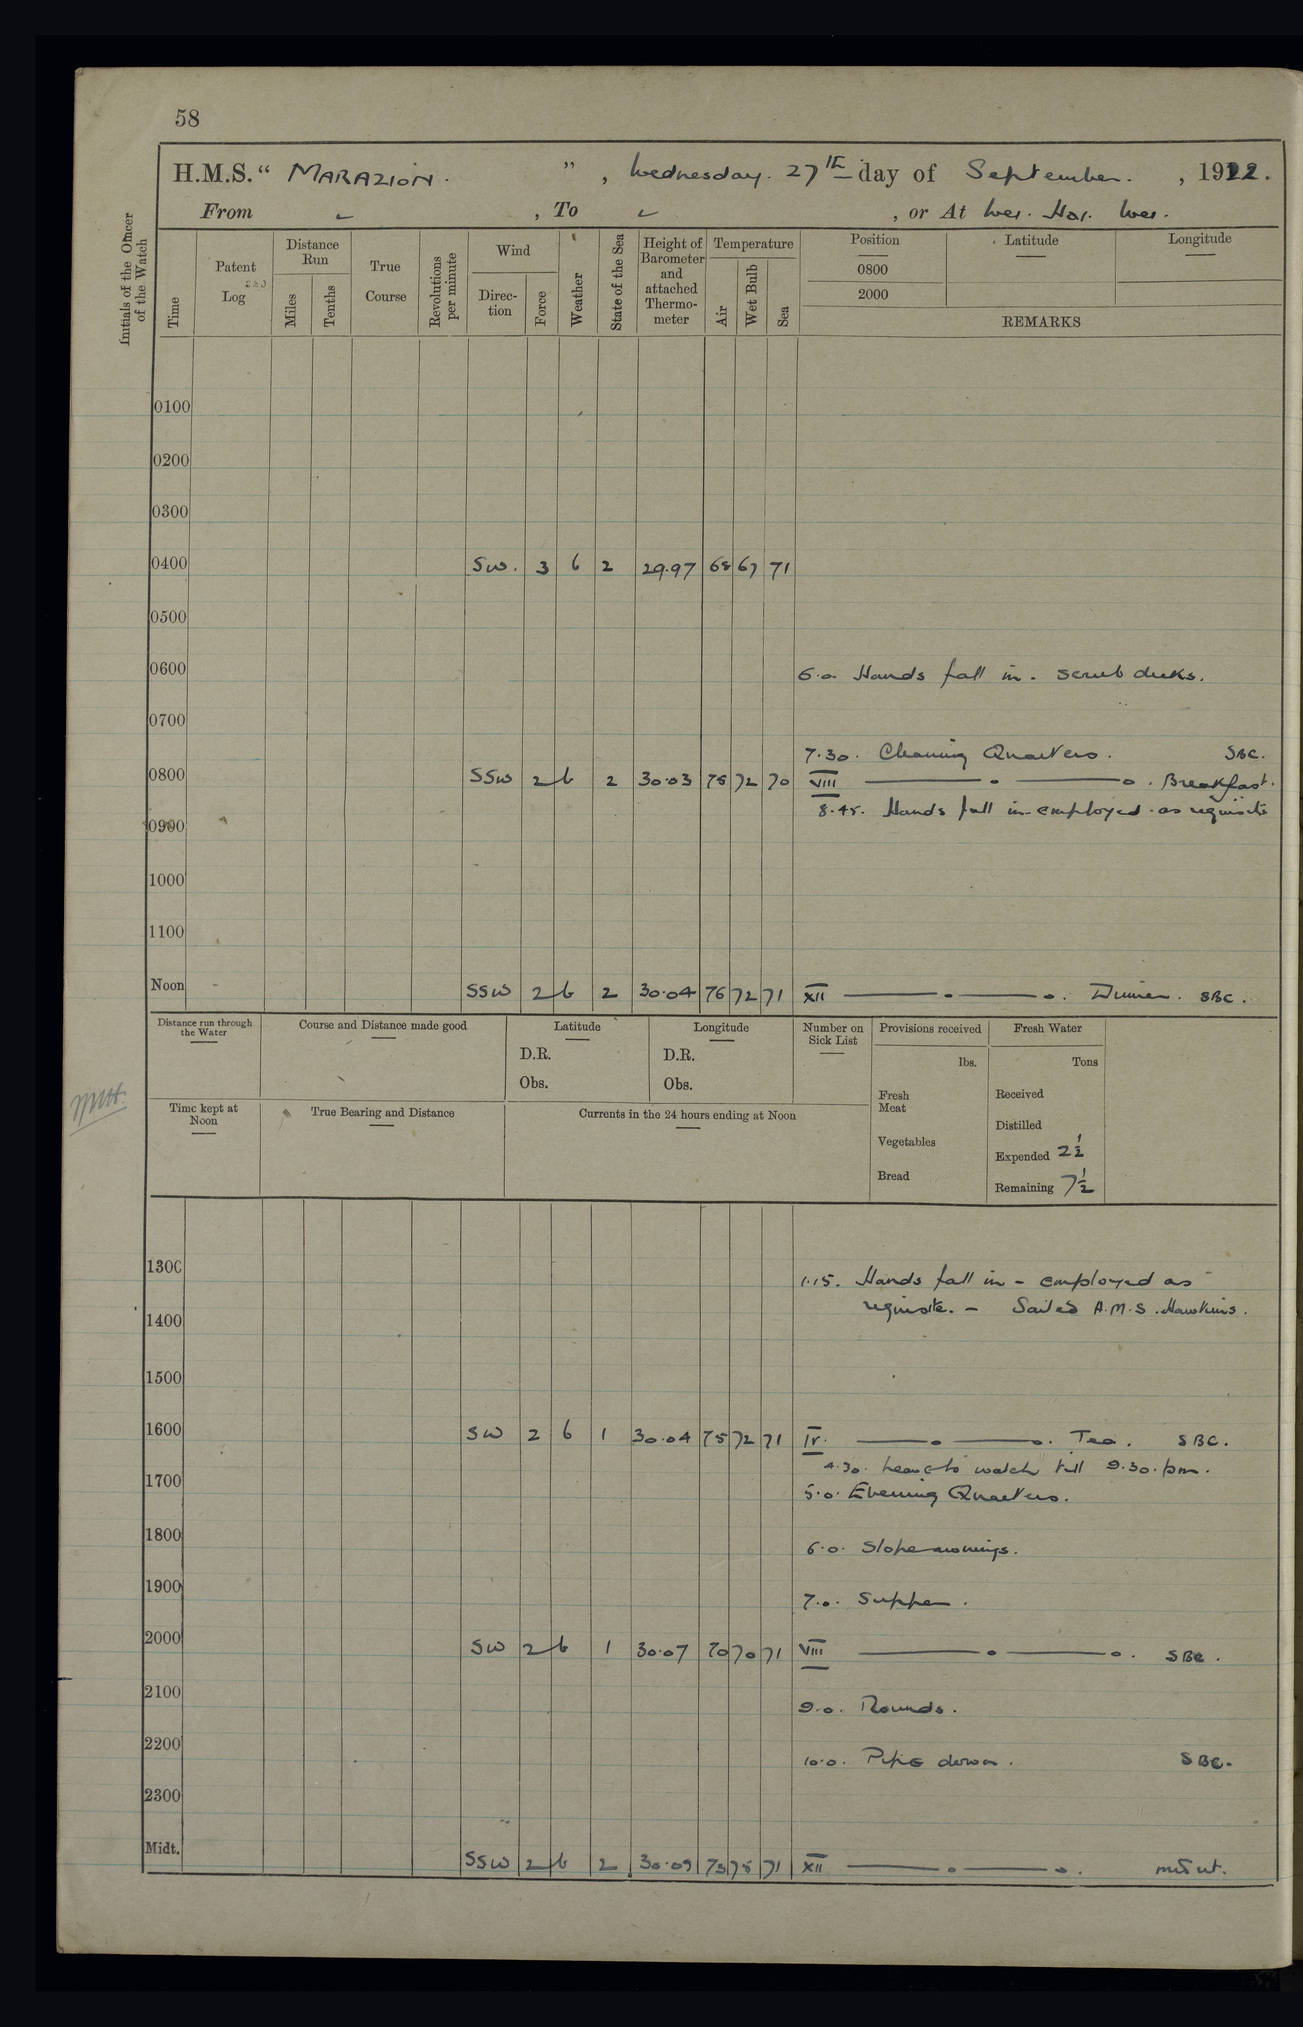 58
H.M.S. "MARAZION." , Wednesday. 27th day of September. , 1922.
From , To , or At Wei. Hai. Wei.
Initials of the Officer of the Watch
Time
Patent Log
Distance Run
Miles
Tenths
True Course
Revolutions per minute
Wind
Direction
Force
Weather
State of the Sea
Height of Barometer and attached Thermometer
Temperature
Air
Wet Bulb
Sea
Position
0800
2000
Latitude
Longitude
REMARKS
0100
0200
0300
0400 SW. 3 b 2 29.97 68 67 71
0500
0600 6.0. Hands fall in. Scrub decks.
0700
7.30. Cleaning Quarters. SBC.
0800 SSW 2 b 2 30.03 75 72 70 VIII Breakfast.
8.45. Hands fall in employed as requisite
0900
1000
1100
Noon SSW 2 b 2 30.04 76 72 71 XII Dinner. SBC.
Distance run through the Water
Course and Distance made good
Latitude
D.R.
Obs.
Longitude
D.R.
Obs.
Number on Sick List
Provisions received
lbs.
Fresh Meat
Vegetables
Bread
Fresh Water
Tons
Received
Distilled
Expended 2½
Remaining 7½
Time kept at Noon
True Bearing and Distance
Currents in the 24 hours ending at Noon
1300 1.15. Hands fall in - employed as
requisite. - Sailed A.M.S. Hawkins.
1400
1500
1600 SW 2 b 1 30.04 75 72 71 IV. Tea. SBC.
4.30. Leave to watch till 9.30. pm.
1700 5.0. Evening Quarters.
1800 6.0. Slope awnings.
1900 7.0. Supper.
2000 SW 2 b 1 30.07 70 70 71 VIII SBC.
2100 9.0. Rounds.
2200 10.0. Pipe down. SBC.
2300
Midt. SSW 2 b 2 30.09 71 XII